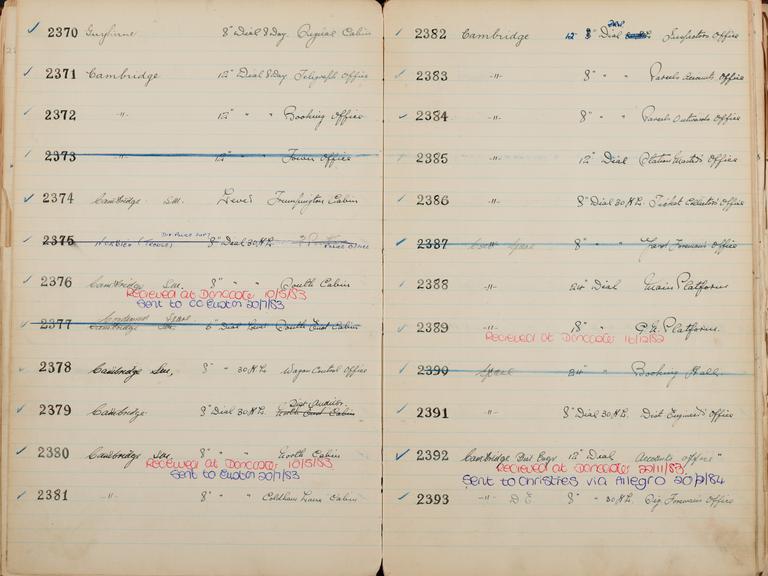 2370 Guyhirne 8" Dial 8 Day. Signal Cabin
2371 Cambridge 12" Dial 8 Day Telegraph Office
2372 -"- 12" " " Booking Office
2373 -"- 12" " " Tower Office
2374 Cambridge S.M. Lever Trumpington Cabin
2375 8" Dial 30 Hr. Police Office
2376 Cambridge S.M. 8" " " South Cabin
Recieved at Doncaster 10/5/83
Sent to CC Euston 20/7/83
Condemned Spare
2377 Cambridge S.M. 8" Dial South East Cabin
2378 Cambridge S.M. 8" " 30 Hr. Wagon Control Office
Dist. Auditor.
2379 Cambridge 8" Dial 30 Hr. North End Cabin
2380 Cambridge S.M. 8" " " North Cabin
Recieved at Doncaster 10/5/83
Sent to Euston 20/7/83
2381 -"- 8" " " Coldham Lane Cabin
2382 Cambridge 12" 8" Dial Inspectors Office
2383 -"- 8" " " Parcels Accounts Office
2384 -"- 8" " " Parcels Outwards Office
2385 -"- 12" Dial Station Masters Office
2386 -"- 8" Dial 30 Hr. Ticket Collectors Office
2387 Spare 8" " " Yard Foremans Office
2388 -"- 24" Dial Main Platform
2389 -"- 18" " G.N. Platform.
Recieved at Doncaster 16/12/82
2390 Spare 24" " Booking Hall.
2391 -"- 8" Dial 30 Hr. Dist Engineers Office
2392 Cambridge Dist Engr 12" Dial Accounts office"
Recieved at Doncaster 22/11/83.
Sent to Christies via Allegro 20/2/84
2393 -"- D.E. 8" " 30 Hr. Sig. Foremans Office